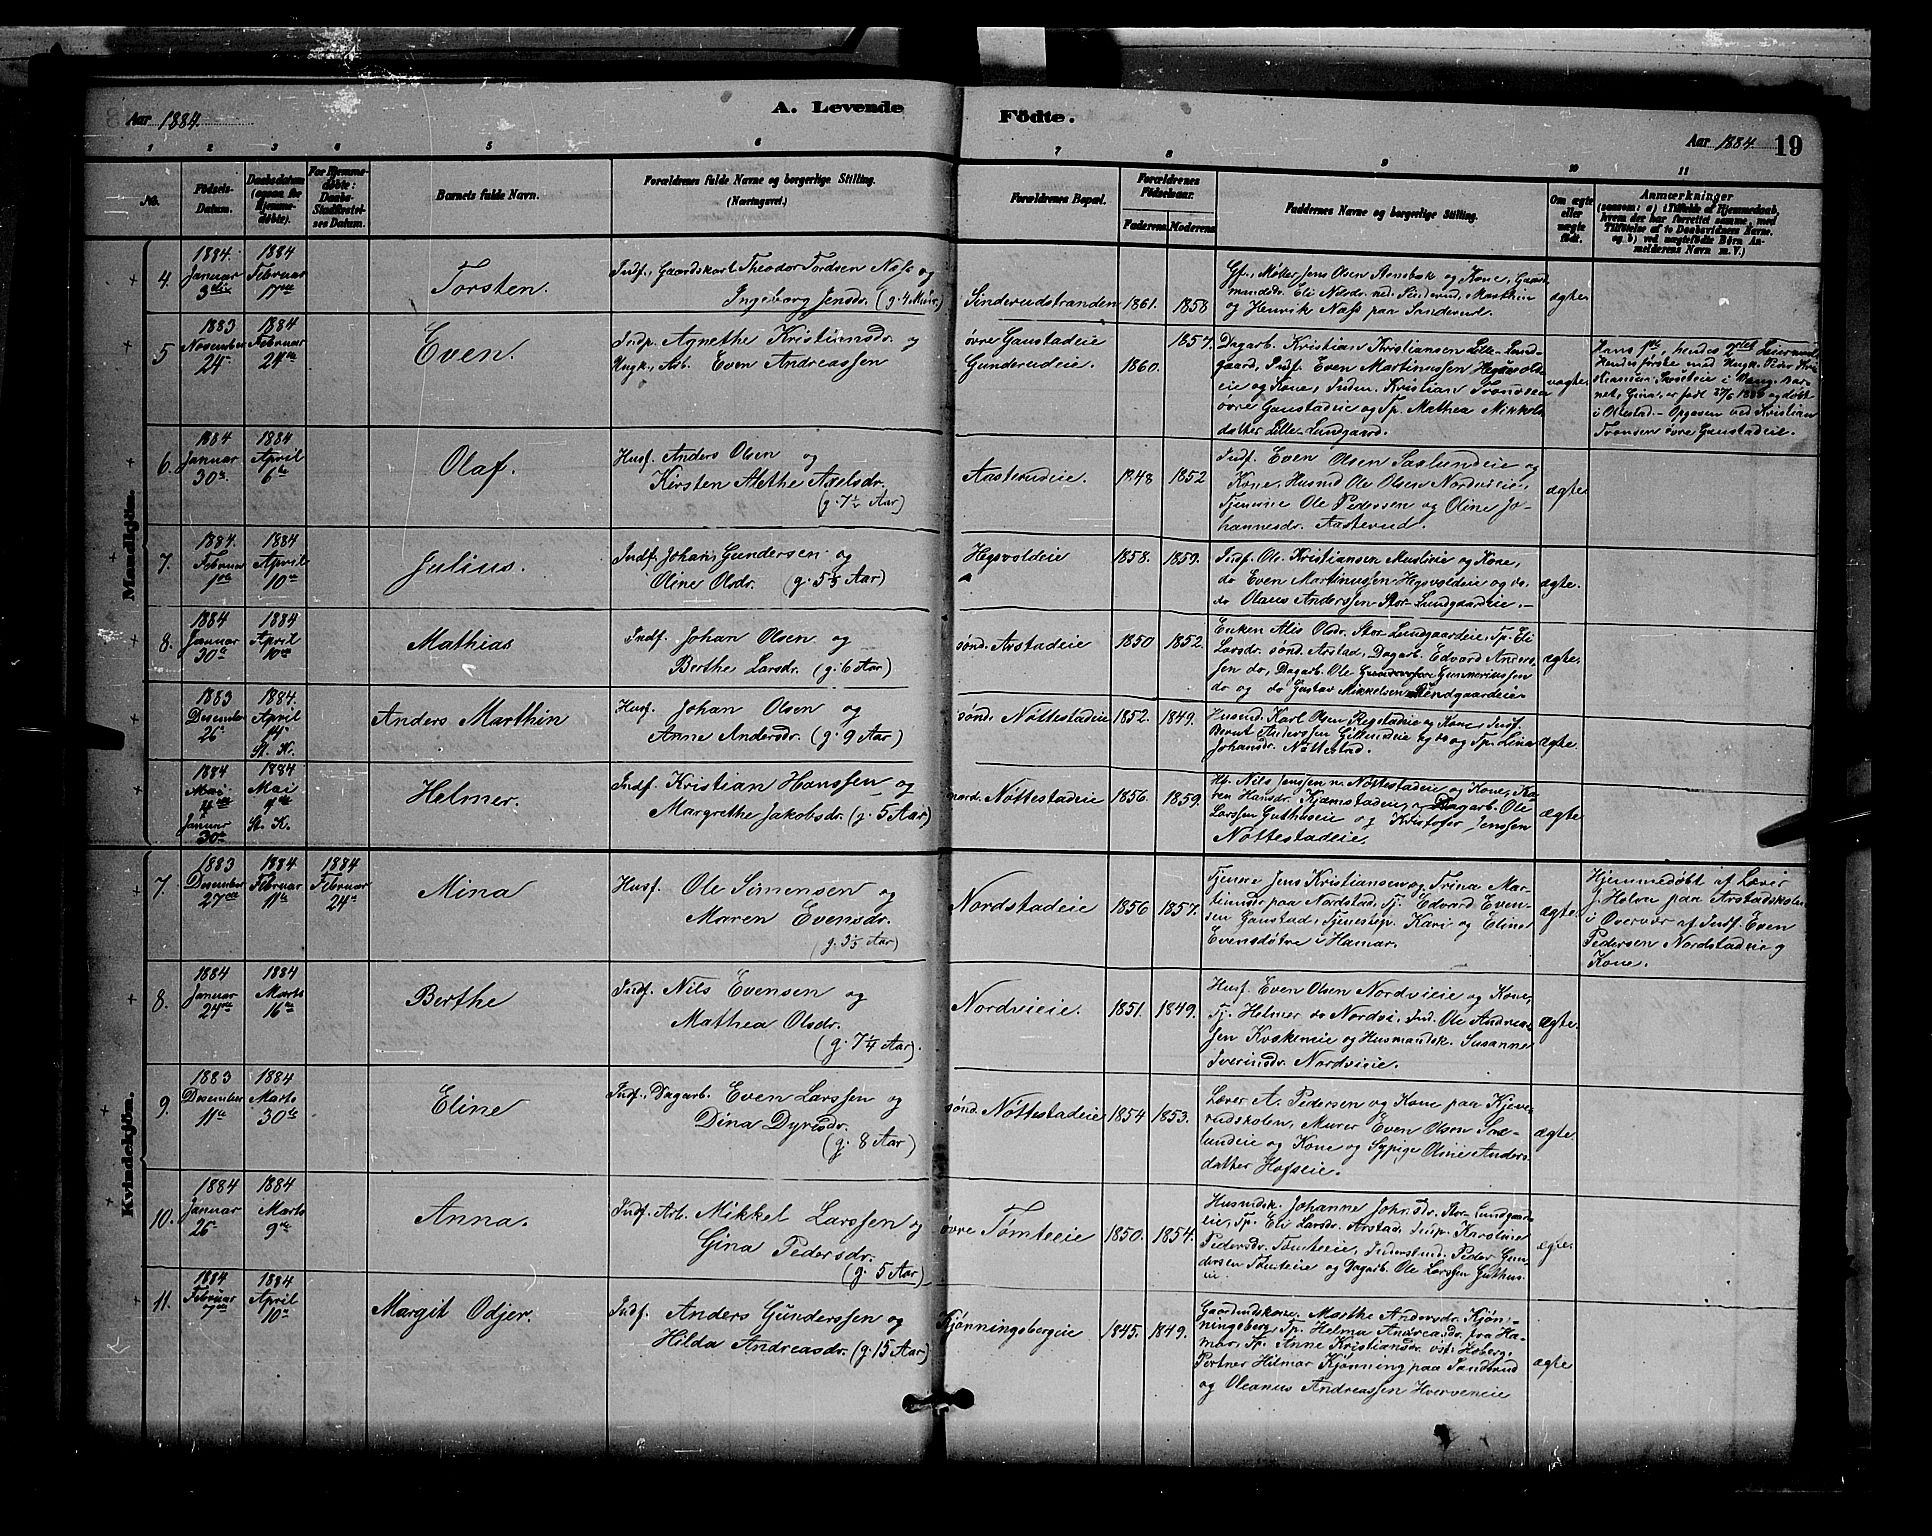 Aar 1884.
A. Levende
Födte.
Aar 1884. 19
1 2 3 4 5 6 7 8 9 10 11
No.
Födsels-
Datum.
Daabsdatum
(ogsaa for
Hjemme-
döbte).
For Hjemme-
döbte:
Daabs-
Stadfæstel-
ses Datum.
Barnets fulde Navn.
Forældrenes fulde Navne og borgerlige Stilling.
(Næringsvei.)
Forældrenes Bopæl.
Forældrenes
Födselsaar.
Faderens Moderens
Faddernes Navne og borgerlige Stilling.
Om ægte
eller
uægte
födt.
Anmærkninger
(saasom: a) i Tilfælde af Hjemmedaab,
hvem der har forrettet samme, med
Tilföielse af to Daabsvidners Navne.
og b) ved uægtefödte Börn An-
melderens Navn m. V.)
Mandkjön.
4.
1884.
Januar
3die
1884
Februar
17de
Torsten.
Indf., Gaardskarl Theodor Tordsen Næss og
Ingeborg Jensdr. (g. 4 Mdr.)
Sinderudstranden
1861. 1858
Gf., Møller Jens Olsen Aensbak og Kone, Gaard-
mandsdr. Eli Nilsdr. ned. Sinderud, Marthin
og Henrik Næss paa Sanderud.
ægte
5
1883
November
24.
1884
Februar
24de
Even.
Indp. Agnethe Kristiansdr. og
Ungk., Arb. Even Andreassen
øvre Gaustadeie
Gunderudeie.
1860. 1857.
Dagarb. Kristian Kristiansen Lille-Lund-
gaard, Indf. Even Martinussen Hegsvold-
eie og Kone, Inderst. Kristian Tronsen
øvre Gaustadeie og Tp. Mathea Mikkels-
datter Lille-Lundgaard.
uægte
Hans 1ste, hendes 2det Leiermaal,
Hendes første med Ungk. Peder Kri-
stiansen i Vang. Bar-
net, Gina, er født 27/6 1880 og døbt
i Ottestad. - Opgaven ved Kristian
Tronsen øvre Gaustadeie.
6.
1884
Januar
30te
1884
April
6te
Olaf.
Husf. Anders Olsen og
Kirsten Alethe Axelsdr.
(g. 7½ Aar)
Aasterudeie.
1848 1852
Indf. Even Olsen Saslundeie og
Kone, Husmd Ole Olsen Nordvieie,
Tjenerne Ole Pedersen og Oline Jo-
hannesdr. Aasterud.
ægte
7.
1884.
Februar
1ste
1884
April
10de
Julius.
Indf. Johan Gundersen og
Oline Olsdr. (g. 5½ Aar)
Hegsvoldeie
1858. 1859.
Indf. Ole Kristiansen Muslieie og Kone,
do Even Martinussen Hegsvoldeie og do.
do Olaus Anderssen Stor-Lundgaardeie. -
ægte.
8.
1884
Januar
30te
1884
April
10de
Mathias
Indf. Johan Olsen og
Berthe Larsdr. (g. 6 Aar)
sønd. Arstadeie
1850 1852.
Enken Alis Olsdr. Stor-Lundgaardeie, Tp. Eli
Larsdr. sønd. Arstad, Dagarb. Edvard Anders-
sen do, Dagarb. Ole Gunnariussen
do og do Gustav Mikkelsen Lundgaardeie
ægte.
1883
Desember
26
1884.
April
14.
St. K.
Anders Marthin
Husf. Johan Olsen og
Anne Andersdr. (g. 9 Aar)
sønd. Nøttestadeie
1852. 1849.
Husmd. Karl Olsen Rogstadeie og Kone, Indf.
Bernt Anderssen Gillundeie og do og Tp. Lina
Johansdr. Nøttestad.
ægte.
1884
Mai
4de
Januar
30te
1884
Mai
4de
St. K.
Helmer.
Indf. Kristian Hanssen og
Margrethe Jakobsdr. (g. 5 Aar)
nord. Nøttestadeie
1856. 1859.
Hf. Nils Jenssen n. Nøttestadeie og Kone, Ka-
ren Hansdr. Kjæmstadeie, Dagarb. Ole
Larssen Guthuseie og Kristofer Jenssen
Nøttestadeie.
ægte
Kvindekjön.
7.
1883
Desember
27de
1884
Februar
11te
1884
Februar
24de
Mina
Husf. Ole Simensen og
Maren Evensdr.
(g. 3½ Aar)
Nordstadeie
1856 1857.
Tjener Jens Kristiansen og Trina Mar-
tinsdr paa Nordstad, Tj. Edvard Even-
sen Gaustad, Tjenestep. Kari og Eline
Evensdøtre i Hamar.
ægte
Hjemmedøbt af Lærer
J. Holm paa Arstadskolen
i Overvær af Indf. Even
Pedersen Nordstadeie og
Kone.
8.
1884
Januar
24de
1884
Marts
16de
Berthe
Indf. Nils Evensen og
Mathea Olsdr.
(g. 7¼ Aar).
Nordvieie.
1851. 1849.
Husf. Even Olsen Nordvieie og Kone,
Tj. Helmer do Nordvi, Ind. Ole Andreas-
sen Kvækeneie og Husmandsk. Susanne
Iverinsdr. Nordvieie.
ægte.
9.
1883
Desember
11te
1884
Marts
30te
Eline
Indf. Dagarb. Even Larssen og
Dina Dyresdr.
(g. 8 Aar)
sønd. Nøttestadeie
1854 1853.
Lærer A. Pedersen og Kone paa Kjeve-
rudskolen, Murer Even Olsen Sas-
lundeie og Kone og Sypige Oline Anders-
datter Hofseie.
ægte.
10.
1884
Januar
26
1884
Marts
9de
Anna.
Indf. Arb. Mikkel Larssen og
Gina Pedersdr.
(g. 5 Aar)
øvre Tømteeie
1850. 1854.
Husmdsk. Johanne Joh.sdr. Stor-Lundgaard-
eie, Tp. Eli Larsdr. Arstad, Indp. Karoline
Pedersdr. Tømteeie, Inderstmd. Peder Gun-
dersen Tømteeie og Dagarb. Ole Larssen Guthus-
eie
ægte.
11.
1884
Februar
7de
1884
April
10de
Margit Odjer.
Indf. Anders Gunderssen og
Hilda Andreasdr. (g. 15 Aar)
Kjønningsbergeie
1845. 1849.
Gaardmdskone Marthe Andersdr. Kjøn-
ningsberg, Tp. Helma Andreasdr. fra Ha-
mar, Tp. Anne Kristiansdr. vst. Hoberg,
Portner Hilmar Kjønning paa Sanderud
og Oleanus Andreassen Hverveneie
ægte